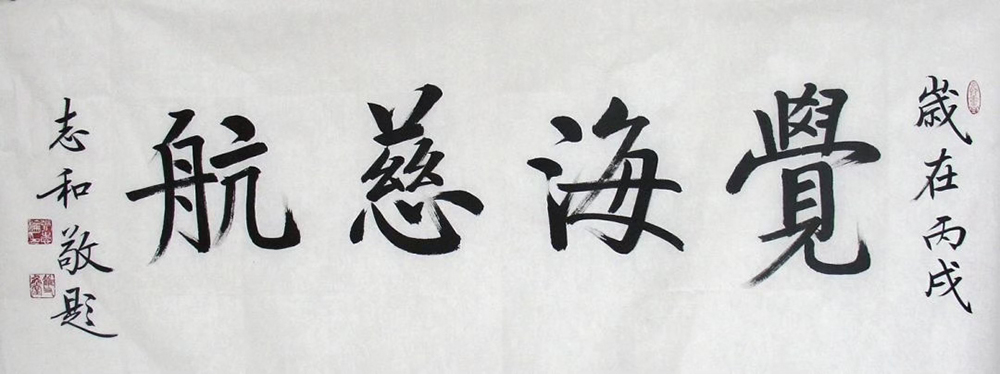 歲在丙戌
覺海慈航
志和敬題